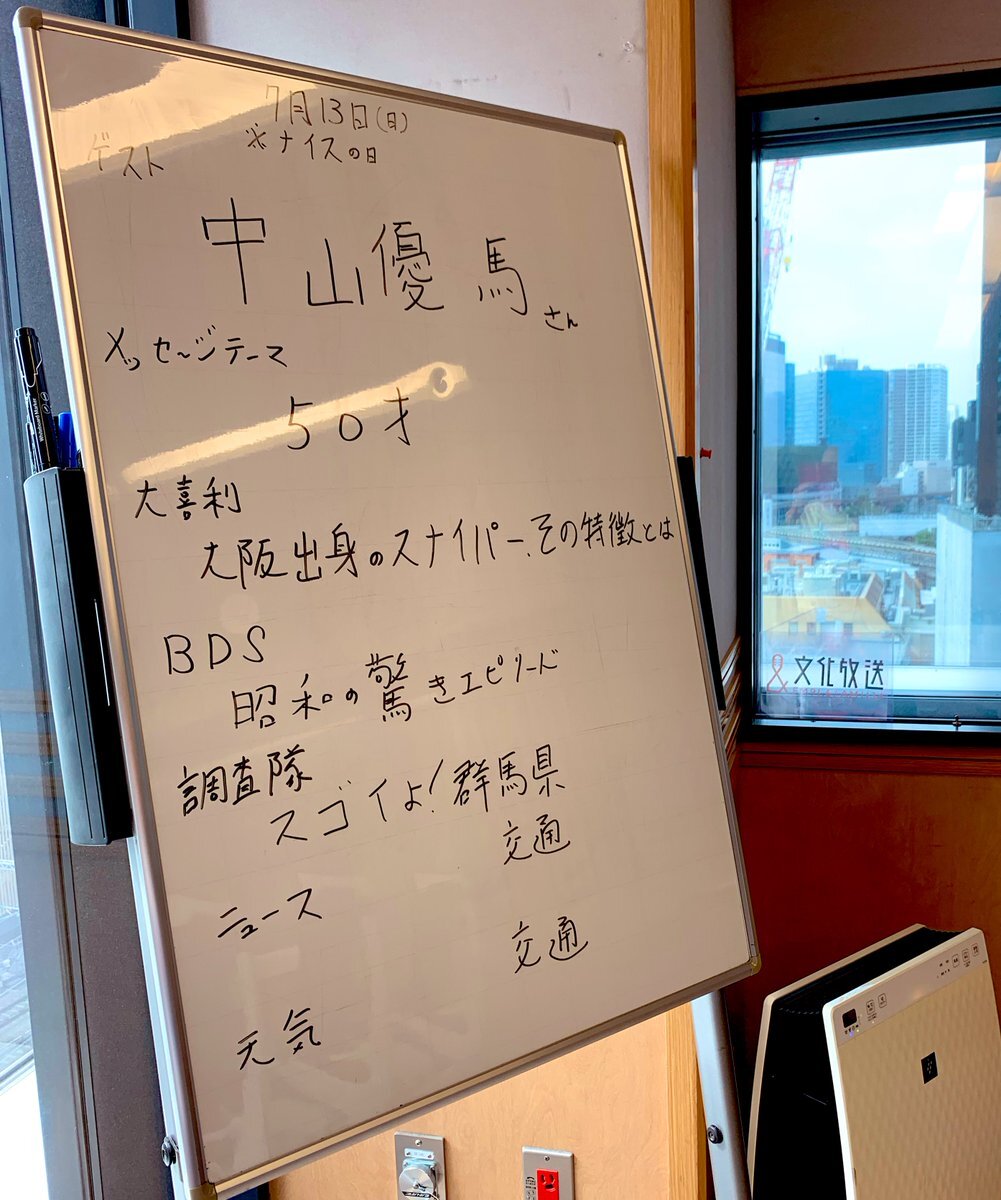 7月13日(日)
※ナイスの日
ゲスト
中山優馬さん
メッセージテーマ
50才
大喜利
大阪出身のスナイパー、その特徴とは
BDS
昭和の驚きエピソード
調査隊
スゴイよ!群馬県
交通
ニュース
交通
天気
文化放送